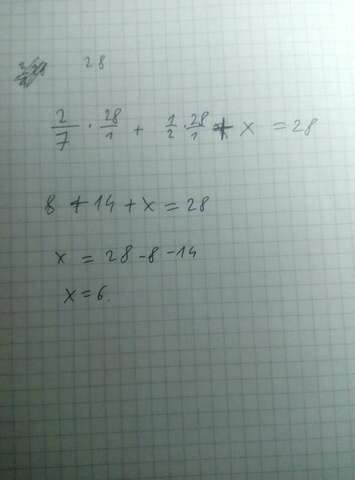 28
2/7 · 28/1 + 1/2 · 28/1 + x = 28
8 + 14 + x = 28
x = 28 - 8 - 14
x = 6.